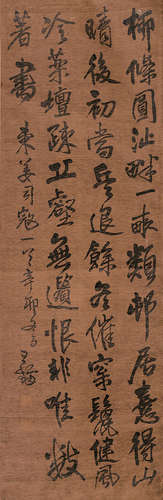 柳條園沚畔一畝類邨居意得山
晴後初嘗兵退餘冬催窮鬢健風
冷菜壇疎丘壑無遺恨非唯數
著書 東姜司寇一笑辛卯 王鐸